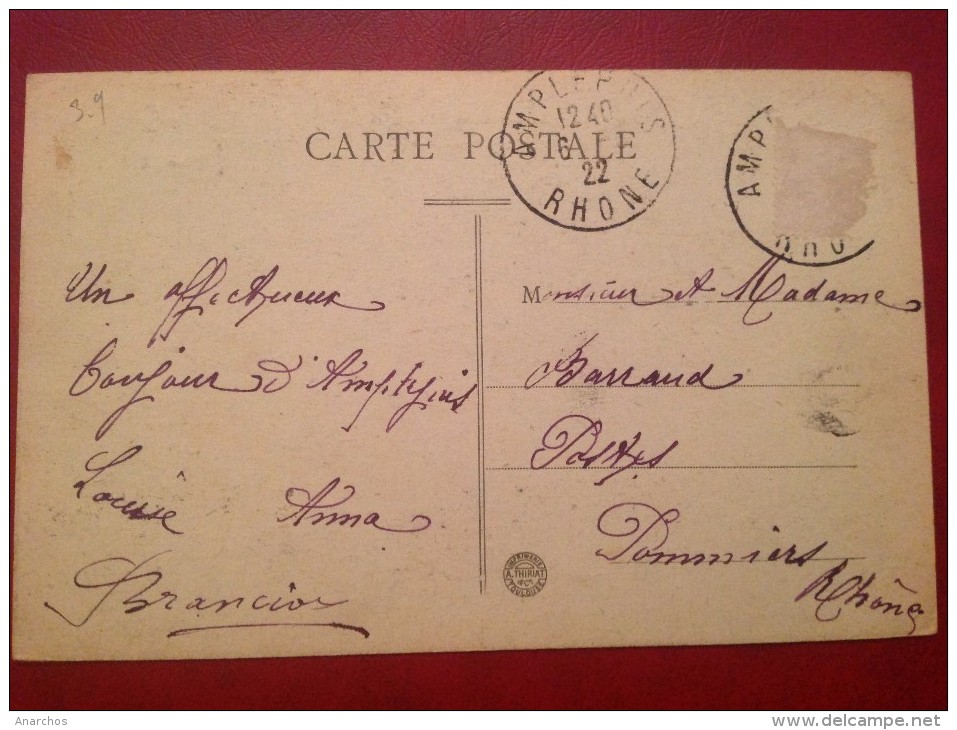 3.9
CARTE POSTALE
AMPLEPUIS
12 40
6
22
RHONE
AMP
RHO
Un affectueux
bonjour d'Amplepuis
Louise Anna
Monsieur et Madame
Barraud
Postes
Pommiers
Rhône
IMPRIMERIE
A. THIRIAT
TOULOUSE
Anarchos
www.delcampe.net